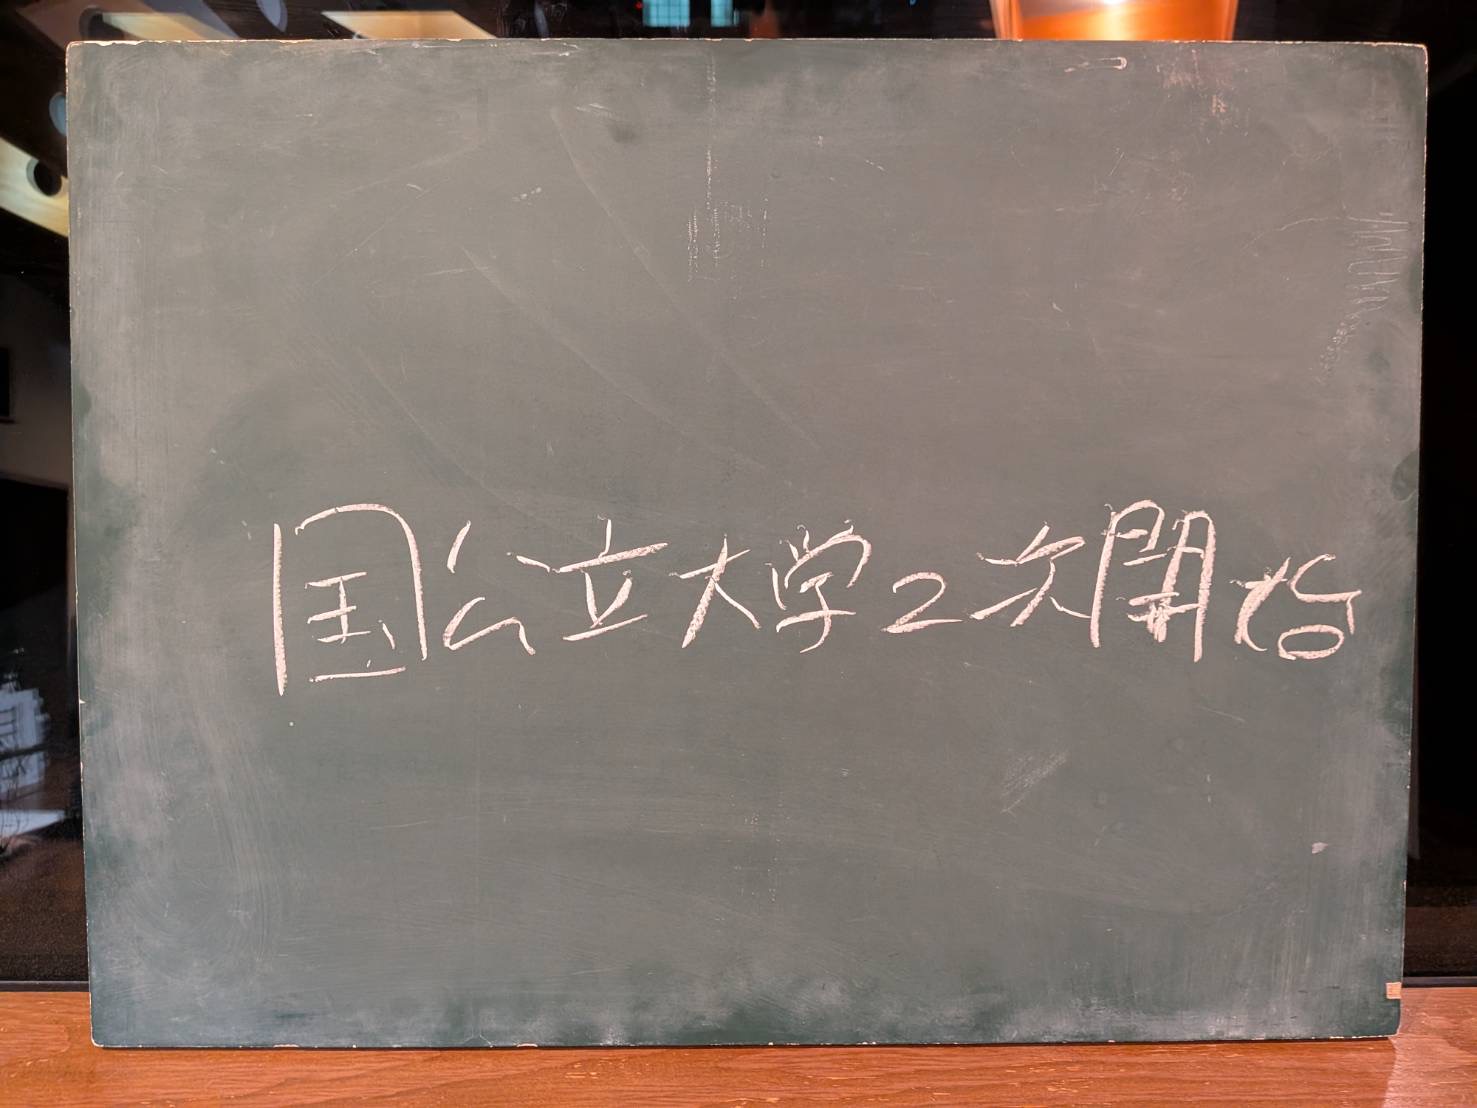 国公立大学2次開始